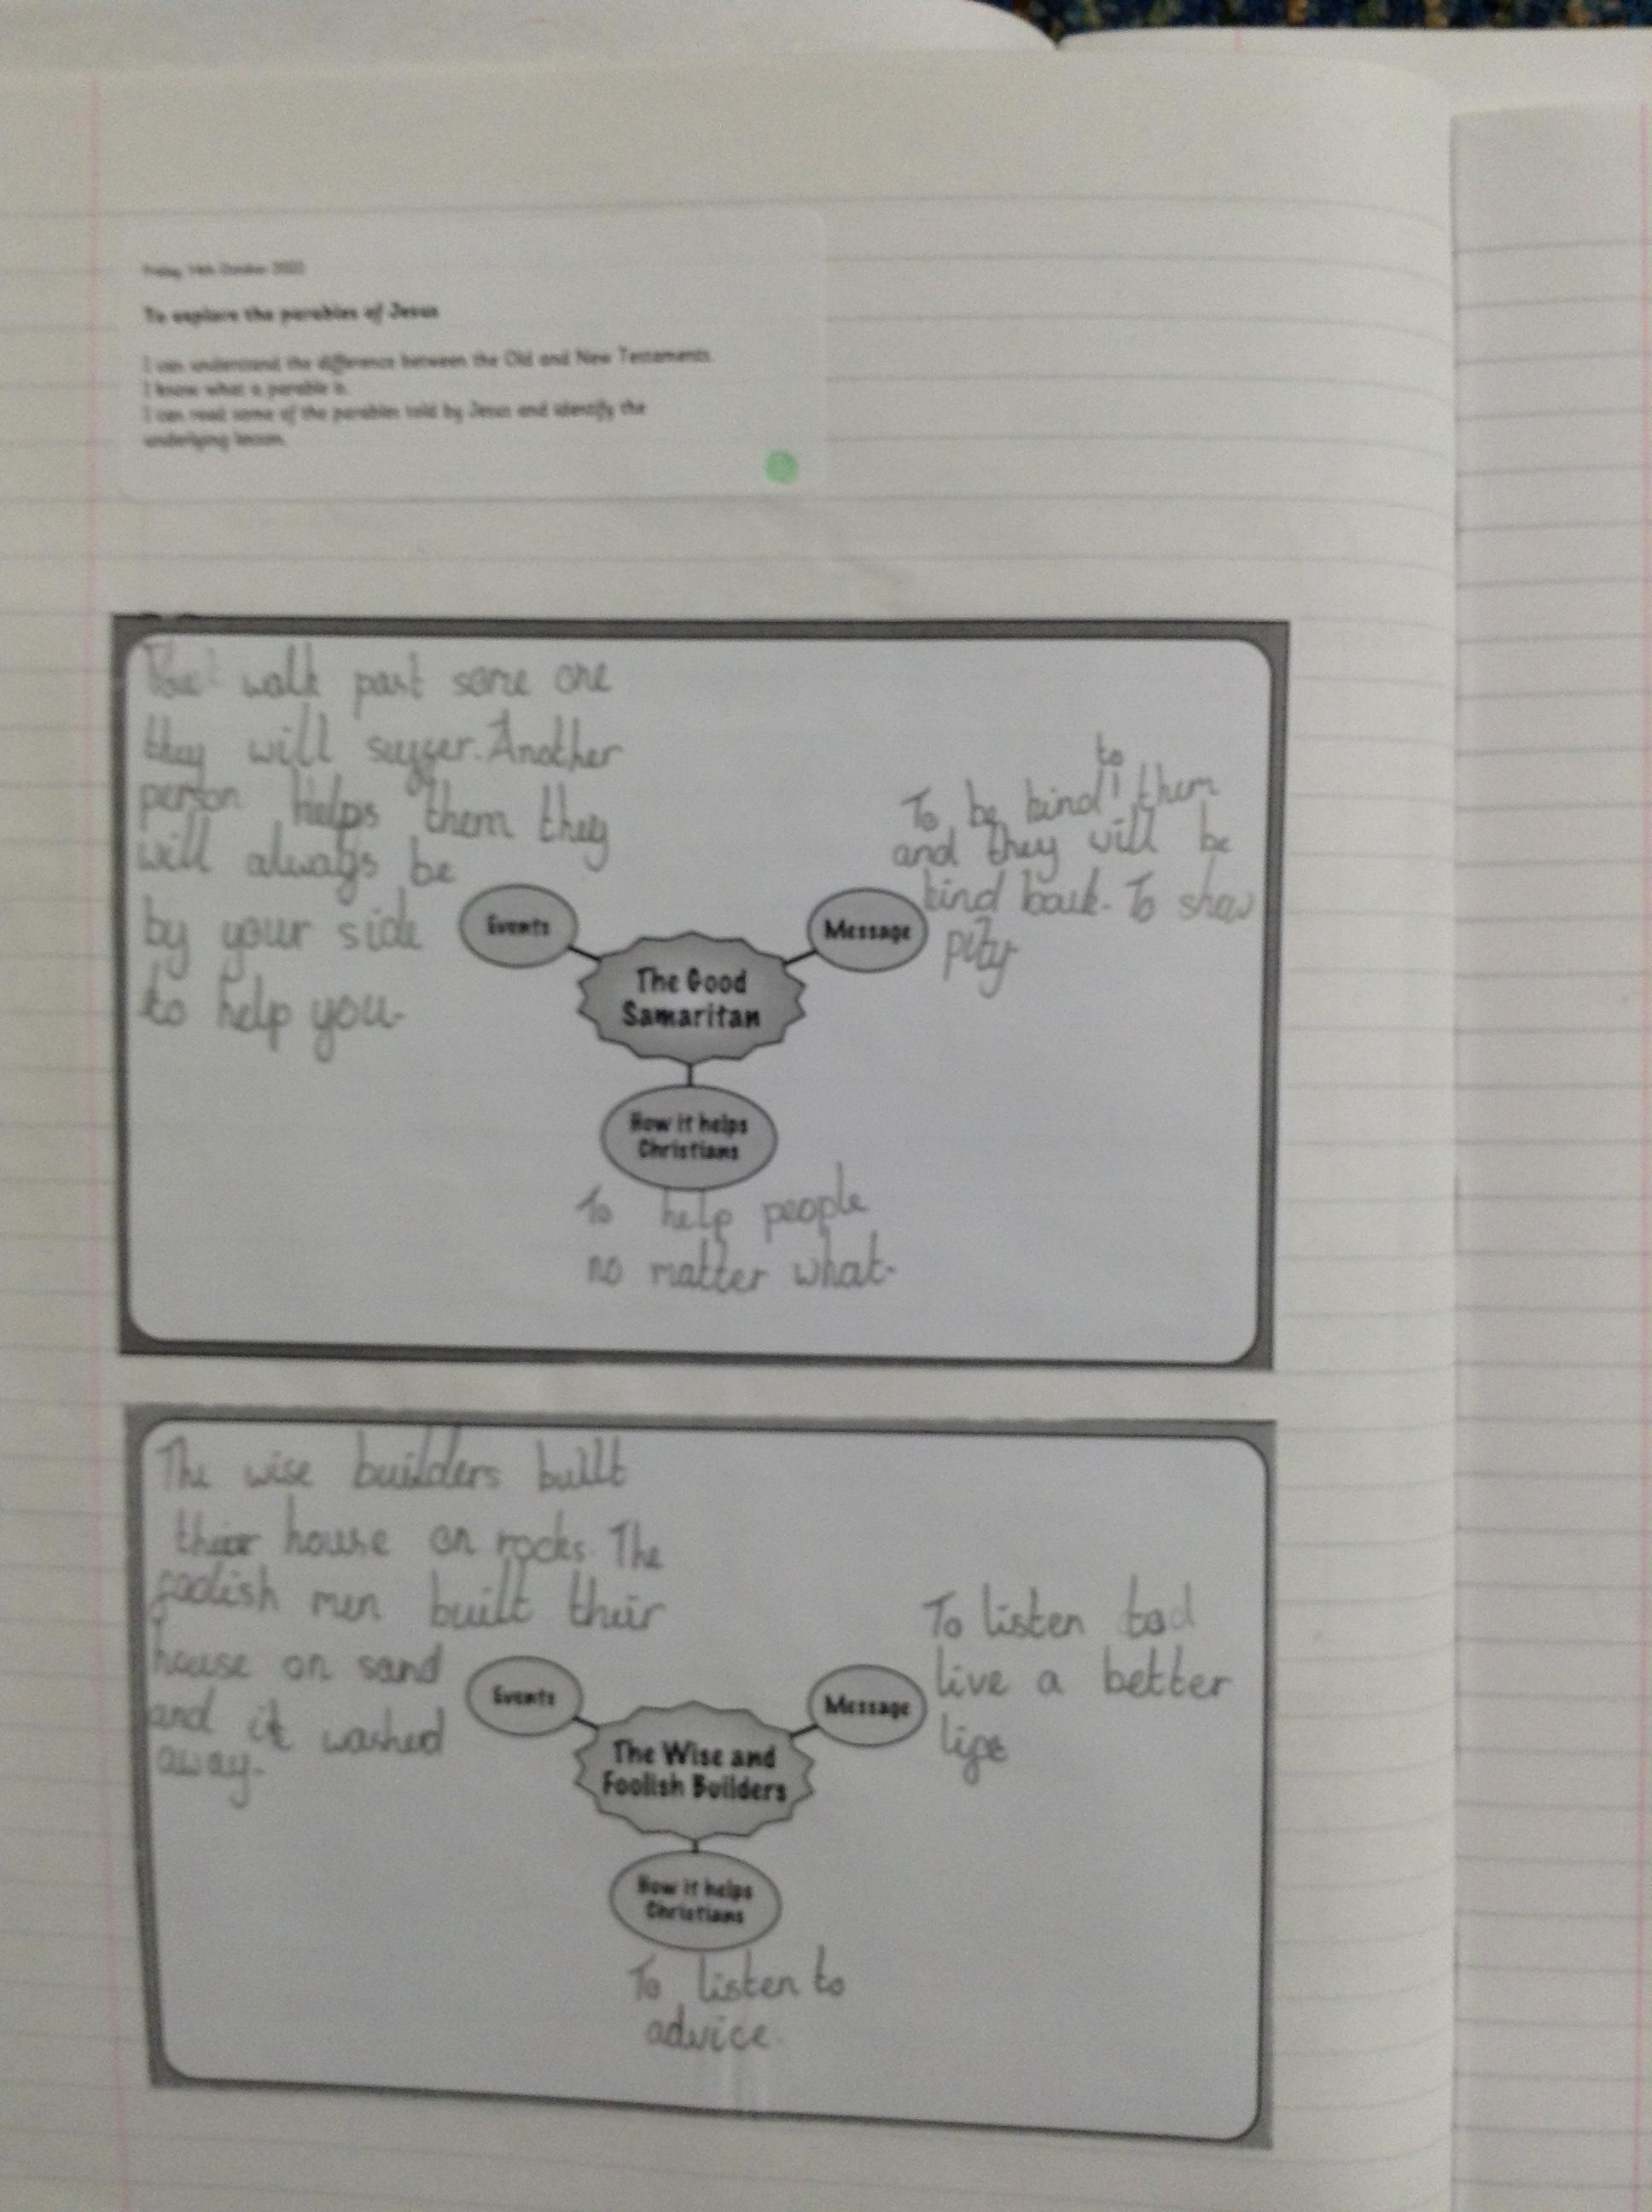 Friday 14th October 2022
To explore the parables of Jesus
I can understand the difference between the Old and New Testaments.
I know what a parable is.
I can read some of the parables told by Jesus and identify the
underlying lesson.
walk past some one
they will suffer. Another
person helps them they
will always be
by your side
to help you.
Events
to
To be kind them
and they will be
kind back. To show
pity
Message
The Good
Samaritan
How it helps
Christians
To help people
no matter what.
The wise builders built
their house on rocks. The
foolish men built their
house on sand
and it washed
away.
Events
To listen
live a better
life
Message
The Wise and
Foolish Builders
How it helps
Christians
To listen to
advice.